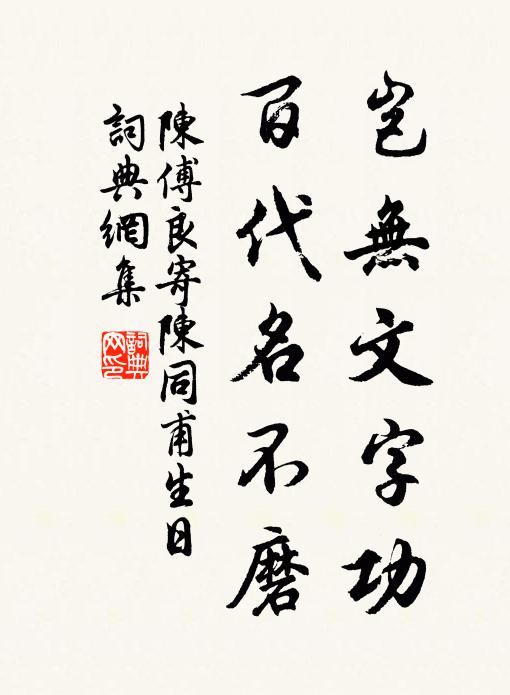 豈無文字功
百代名不磨
陳傅良寄陳同甫生日
詞典網集
詞典
网印